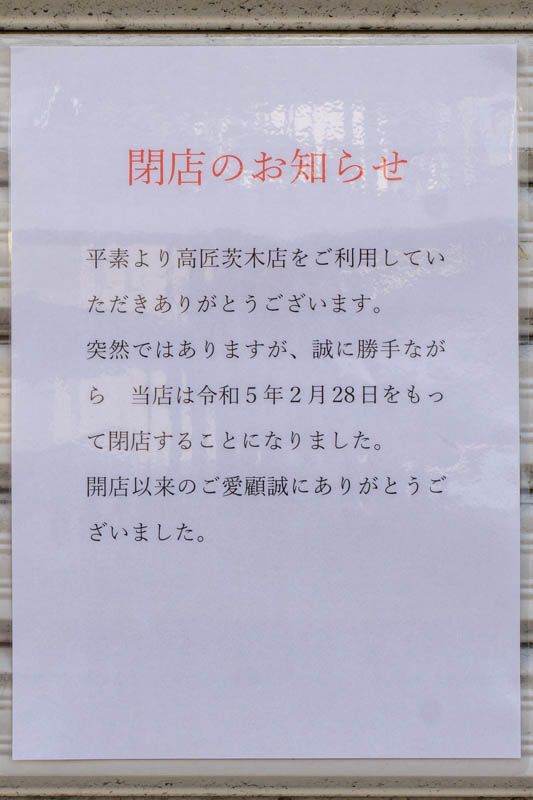 閉店のお知らせ
平素より高匠茨木店をご利用してい
ただきありがとうございます。
突然ではありますが、誠に勝手なが
ら　当店は令和５年２月28日をもっ
て閉店することになりました。
開店以来のご愛顧誠にありがとうご
ざいました。